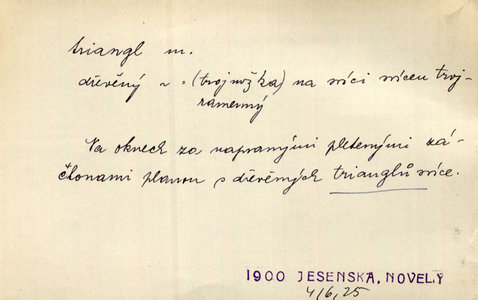 triangl m.
dřevěný ~ = (trojnožka) na svíci svícen troj-
ramenný
Na oknech za napranými pletenými zá-
clonami planou s dřevěných trianglů svíce.
1900 JESENSKA, NOVELY
4/6, 25